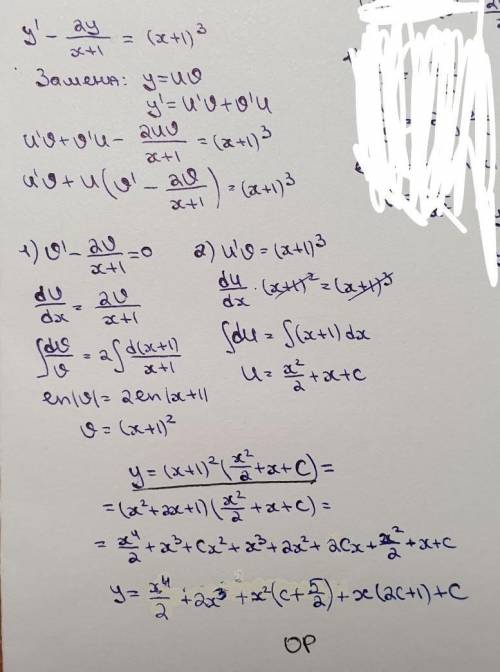 y' - 2y/(x+1) = (x+1)³
Замена: y = uv
y' = u'v + v'u
u'v + v'u - 2uv/(x+1) = (x+1)³
u'v + u(v' - 2v/(x+1)) = (x+1)³
1) v' - 2v/(x+1) = 0
dv/dx = 2v/(x+1)
∫dv/v = 2∫d(x+1)/(x+1)
ln|v| = 2ln|x+1|
v = (x+1)²
2) u'v = (x+1)³
du/dx · (x+1)² = (x+1)³
∫du = ∫(x+1)dx
u = x²/2 + x + C
y = (x+1)²(x²/2 + x + C) =
= (x² + 2x + 1)(x²/2 + x + C) =
= x⁴/2 + x³ + Cx² + x³ + 2x² + 2Cx + x²/2 + x + C
y = x⁴/2 + 2x³ + x²(C + 5/2) + x(2C+1) + C
OP